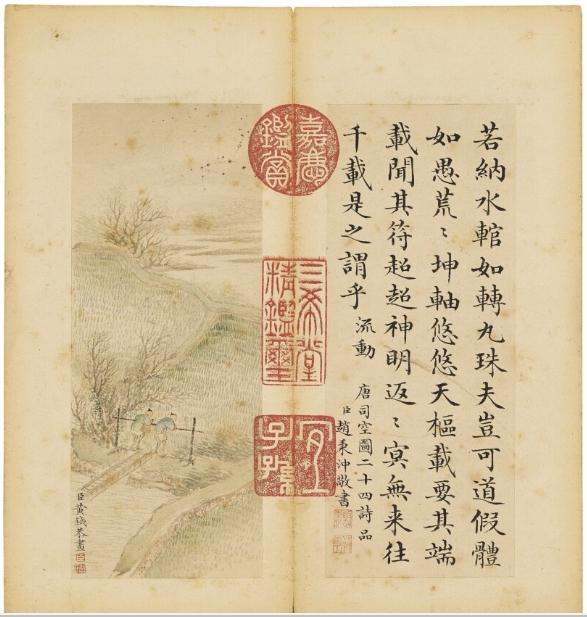 若納水輨如轉丸珠夫豈可道假體
如愚荒〻坤軸悠悠天樞載要其端
載聞其符超超神明返〻冥無来往
千載是之謂乎 流動
唐司空圖二十四詩品
臣趙秉沖敬書
嘉慶鑑賞
三希堂精鑑璽
宜子孫
臣黃鉞恭畫